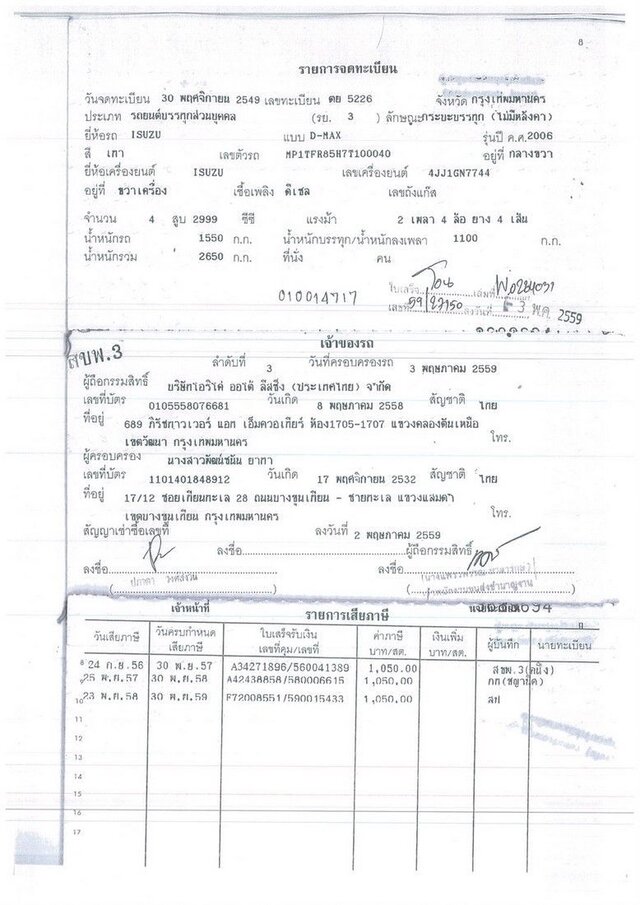 8
รายการจดทะเบียน
วันจดทะเบียน 30 พฤศจิกายน 2549 เลขทะเบียน ตย 5226 จังหวัด กรุงเทพมหานคร
ประเภท รถยนต์บรรทุกส่วนบุคคล (รย. 3 ) ลักษณะกระบะบรรทุก (ไม่มีหลังคา)
ยี่ห้อรถ ISUZU แบบ D-MAX รุ่นปี ค.ศ.2006
สี เทา เลขตัวรถ MP1TFR85H7T100040 อยู่ที่ กลางขวา
ยี่ห้อเครื่องยนต์ ISUZU เลขเครื่องยนต์ 4JJ1GN7744
อยู่ที่ ขวาเครื่อง เชื้อเพลิง ดีเซล เลขถังแก๊ส
จำนวน 4 สูบ 2999 ซีซี แรงม้า 2 เพลา 4 ล้อ ยาง 4 เส้น
น้ำหนักรถ 1550 ก.ก. น้ำหนักบรรทุก/น้ำหนักลงเพลา 1100 ก.ก.
น้ำหนักรวม 2650 ก.ก. ที่นั่ง คน
ใบเสร็จ โอน เล่มที่
010014717 เลขที่ 59/27750 ลงวันที่ 3 พ.ค. 2559
สขพ.3
เจ้าของรถ
ลำดับที่ 3 วันที่ครอบครองรถ 3 พฤษภาคม 2559
ผู้ถือกรรมสิทธิ์ บริษัทโอริโค่ ออโต้ ลีสซิ่ง (ประเทศไทย) จำกัด
เลขที่บัตร 0105558076681 วันเกิด 8 พฤษภาคม 2558 สัญชาติ ไทย
ที่อยู่ 689 ภิรัชทาวเวอร์ แอท เอ็มควอเทียร์ ห้อง1705-1707 แขวงคลองตันเหนือ
เขตวัฒนา กรุงเทพมหานคร โทร.
ผู้ครอบครอง นางสาวพัฒน์ชนัน ยาทา
เลขที่บัตร 1101401848912 วันเกิด 17 พฤศจิกายน 2532 สัญชาติ ไทย
ที่อยู่ 17/12 ซอยเทียนทะเล 28 ถนนบางขุนเทียน - ชายทะเล แขวงแสมดำ
เขตบางขุนเทียน กรุงเทพมหานคร โทร.
สัญญาเช่าซื้อเลขที่ ลงวันที่ 2 พฤษภาคม 2559
ลงชื่อ ผู้ถือกรรมสิทธิ์
ลงชื่อ ลงชื่อ
เจ้าหน้าที่ นายทะเบียน
รายการเสียภาษี
วันเสียภาษี วันครบกำหนดเสียภาษี ใบเสร็จรับเงิน เลขที่คุม/เลขที่ ค่าภาษี บาท/สต. เงินเพิ่ม บาท/สต. ผู้บันทึก นายทะเบียน
8 24 ก.ย.56 30 พ.ย.57 A34271896/560041389 1,050.00 สขพ.3(คนึง)
9 25 พ.ย.57 30 พ.ย.58 A42438858/580006615 1,050.00
10 23 พ.ย.58 30 พ.ย.59 F72008551/590015433 1,050.00
11
12
13
14
15
16
17